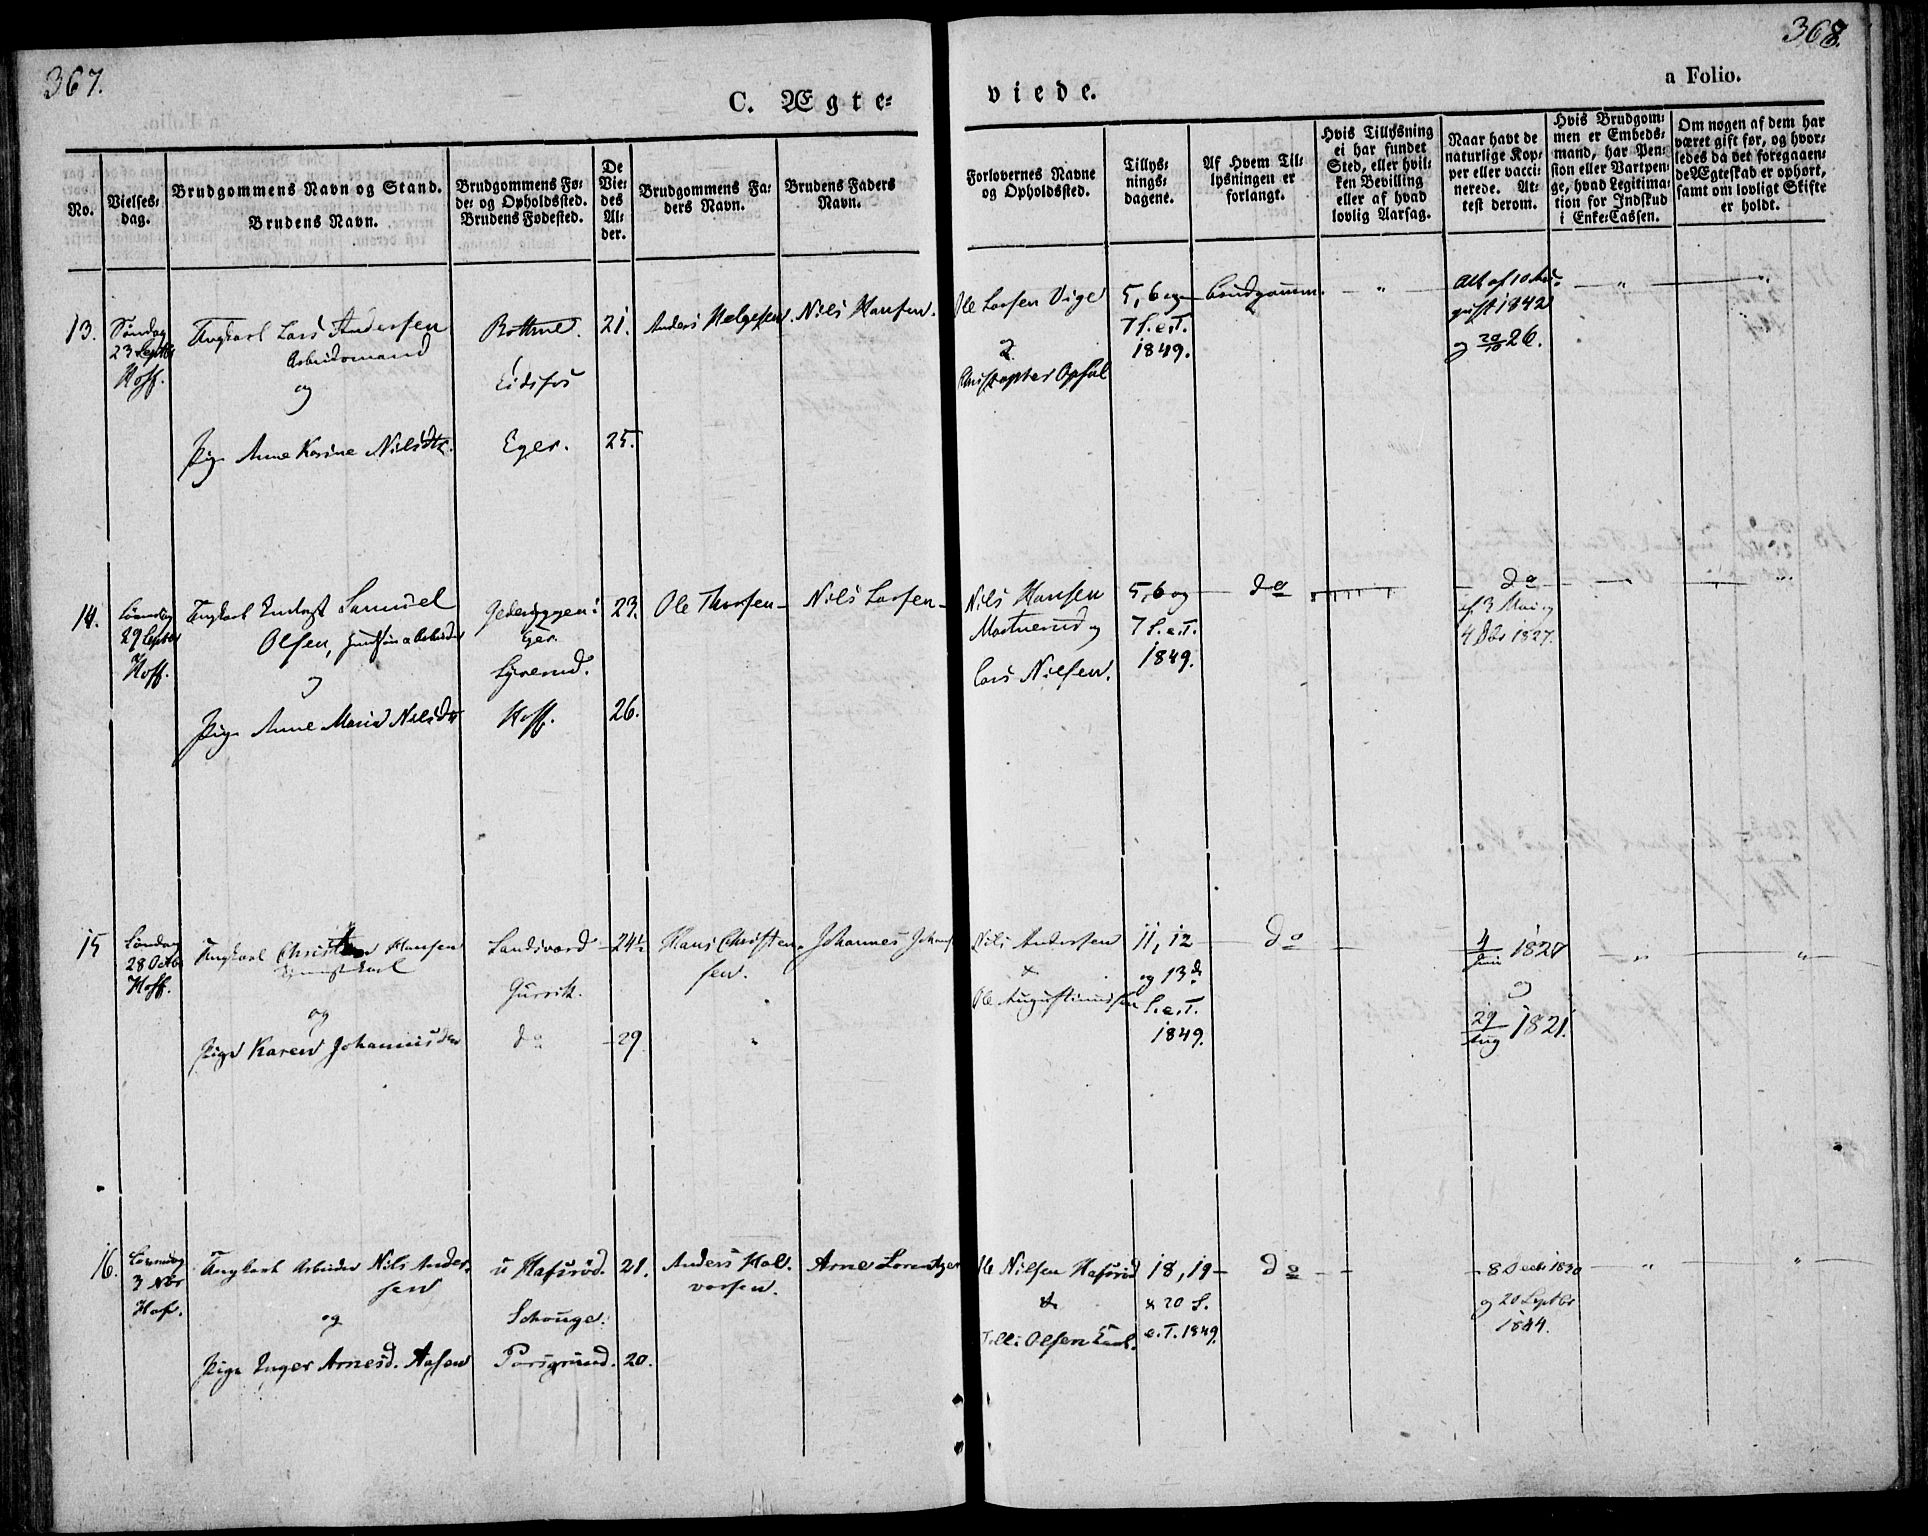 367.
368.
C. Ægte=
viede.
a Folio.
No.
Vielses=
dag.
Brudgommens Navn og Stand.
Brudens Navn.
Brudgommens Fø=
de= og Opholdssted.
Brudens Fødested.
De
Vie=
des
Al=
der.
Brudgommens Fa=
ders Navn.
Brudens Faders
Navn.
Forlovernes Navne
og Opholdssted.
Tillys=
nings=
dagene.
Af Hvem Til=
lysningen er
forlangt.
Hvis Tillysning
ei har fundet
Sted, eller hvil=
ken Bevilling
eller af hvad
lovlig Aarsag.
Naar havt de
naturlige Kop=
per eller vacci=
nerede. At=
test derom.
Hvis Brudgom=
men er Embeds=
mand, har Pen=
sion eller Vartpen=
ge, hvad Legitima=
tion for Indskud
i Enke=Cassen.
Om nogen af dem har
været gift før, og hvor=
ledes da det foregaaen=
de Ægteskab er ophørt,
samt om lovligt Skifte
er holdt.
13.
Søndag
23 Septbr
Hoff.
Ungkarl Lars Andersen
Arbeidsmand
og
Pige Anne Karine Nilsdtr.
Eidsfos
Eger.
21.
25.
Anders Helgesen.
Nils Hansen.
Ole Larsen Vige
&
Christopher Opsal
5, 6 og
7 S. e. T.
1849.
Brudgommen.
Att af 10 Au=
gust 1842
og 20/10 26.
14.
29 Septbr
Hoff.
Ungkarl Samuel
Olsen,
og
Pige Anne Marie Nilsdtr
Eger.
Hoff.
23.
26.
Ole Thorsen
Nils Larsen
Nils Hansen
og
Lars Nielsen.
5, 6 og
7 S. e. T.
1849.
do
do
af 3 Mai og
4 Dbr 1827.
15
28 Octb
Hoff.
Ungkarl Christian Hansen
og
Pige Karen Johannesdtr
do
24½
29
Hans Christen=
sen.
Johannes
Nils Andersen
&
Ole Augustinussen
11, 12
og 13d
S. e. T.
1849.
do
4/Juni 1827
og
29/Aug 1821.
16.
3 Nbr
Hof.
Ungkarl Arbeider Nils Ander=
sen
og
Pige Inger Arnesd. Aasen
u Hafsrød.
Schouger.
Porsgrund.
21.
20.
Anders Hal=
vorsen.
Arne Lorentzen
Ole Nilsen Hafsrød
&
Olsen
18, 19
& 20 S.
e. T. 1849.
do
8 Decbr 1830
og 20 Septbr
1844.